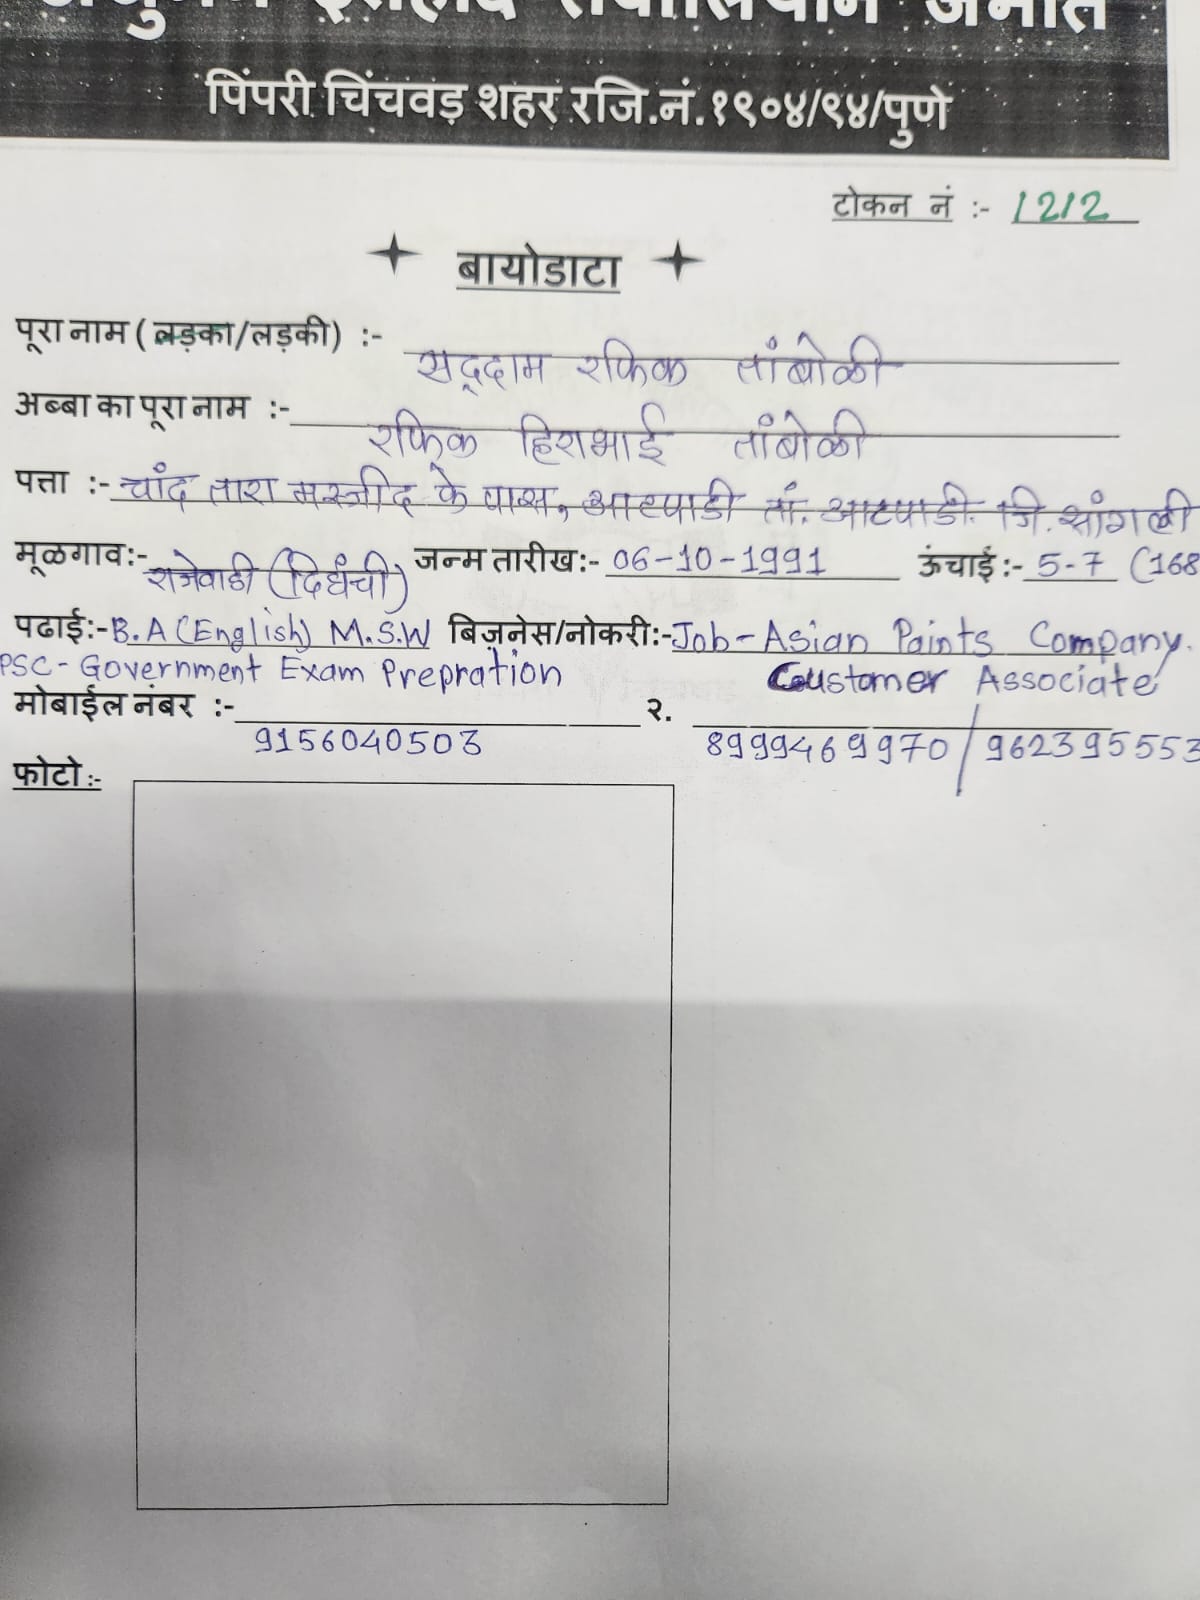 पिंपरी चिंचवड शहर रजि.नं.१९०४/९४/पुणे
टोकन नं :- 1212
बायोडाटा
पूरा नाम ( लड़का/लड़की) :- सद्दाम रफिक तांबोळी
अब्बा का पूरा नाम :- रफिक हिराभाई तांबोळी
पत्ता :- चांद तारा मस्जीद के पास, आटपाडी तां. आटपाडी. जि. सांगली
मूळगाव:- राजेवाडी (दिघंची) जन्म तारीख:- 06-10-1991 ऊंचाई:- 5-7 (168
पढाई:- B.A (English) M.S.W बिज़नेस/नोकरी:- Job - Asian Paints Company.
PSC - Government Exam Prepration Customer Associate
मोबाईल नंबर :- 9156040503 २. 8999469970 / 962395553
फोटो :-